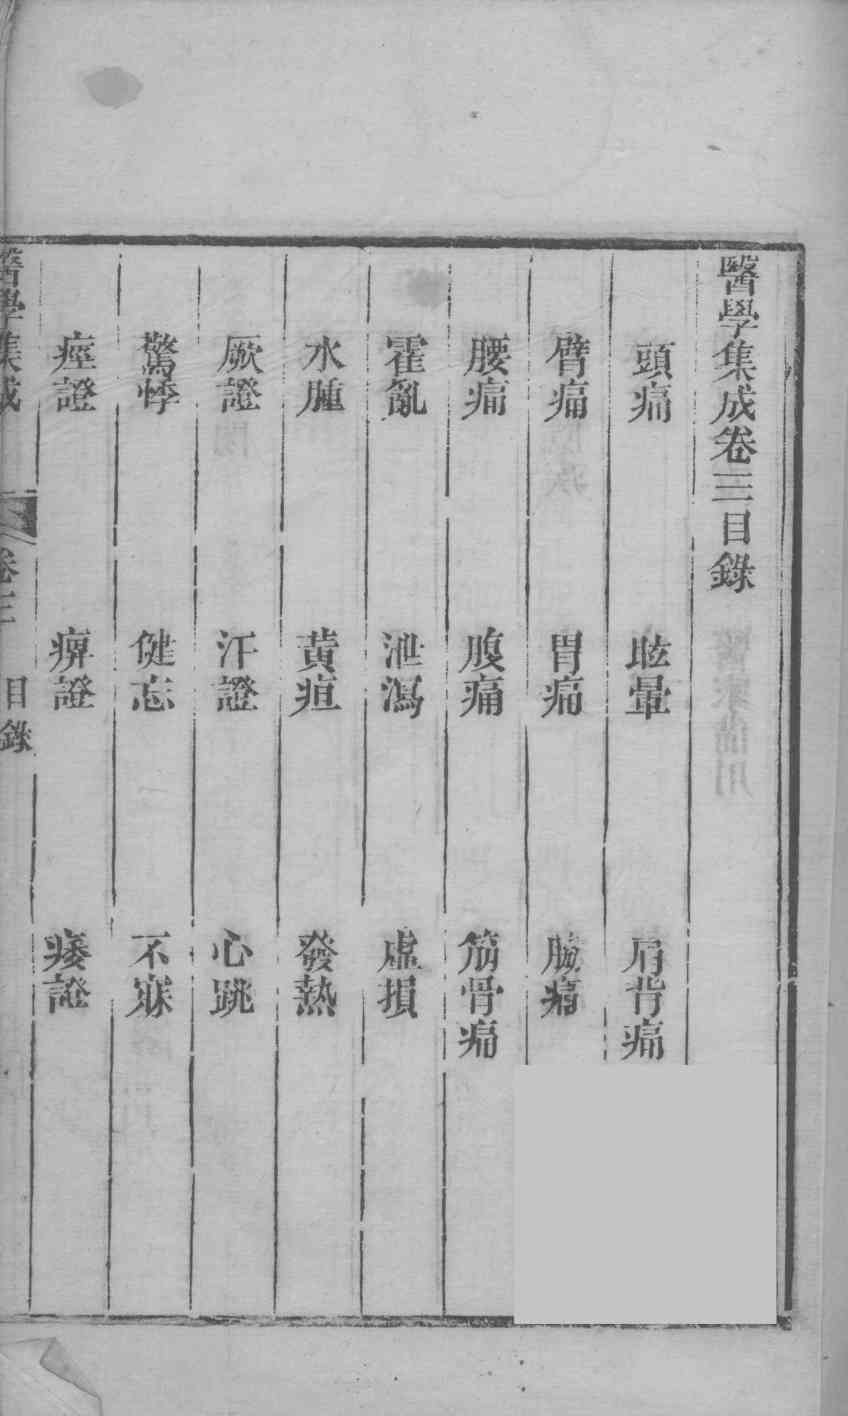 醫學集成卷三目錄
頭痛 眩暈 肩背痛
臂痛 胃痛 胸痛
腰痛 腹痛 筋骨痛
霍亂 泄瀉 虛損
水腫 黃疸 發熱
厥證 汗證 心跳
驚悸 健忘 不寐
痙證 痹證 痿證
醫學集成 卷三 目錄